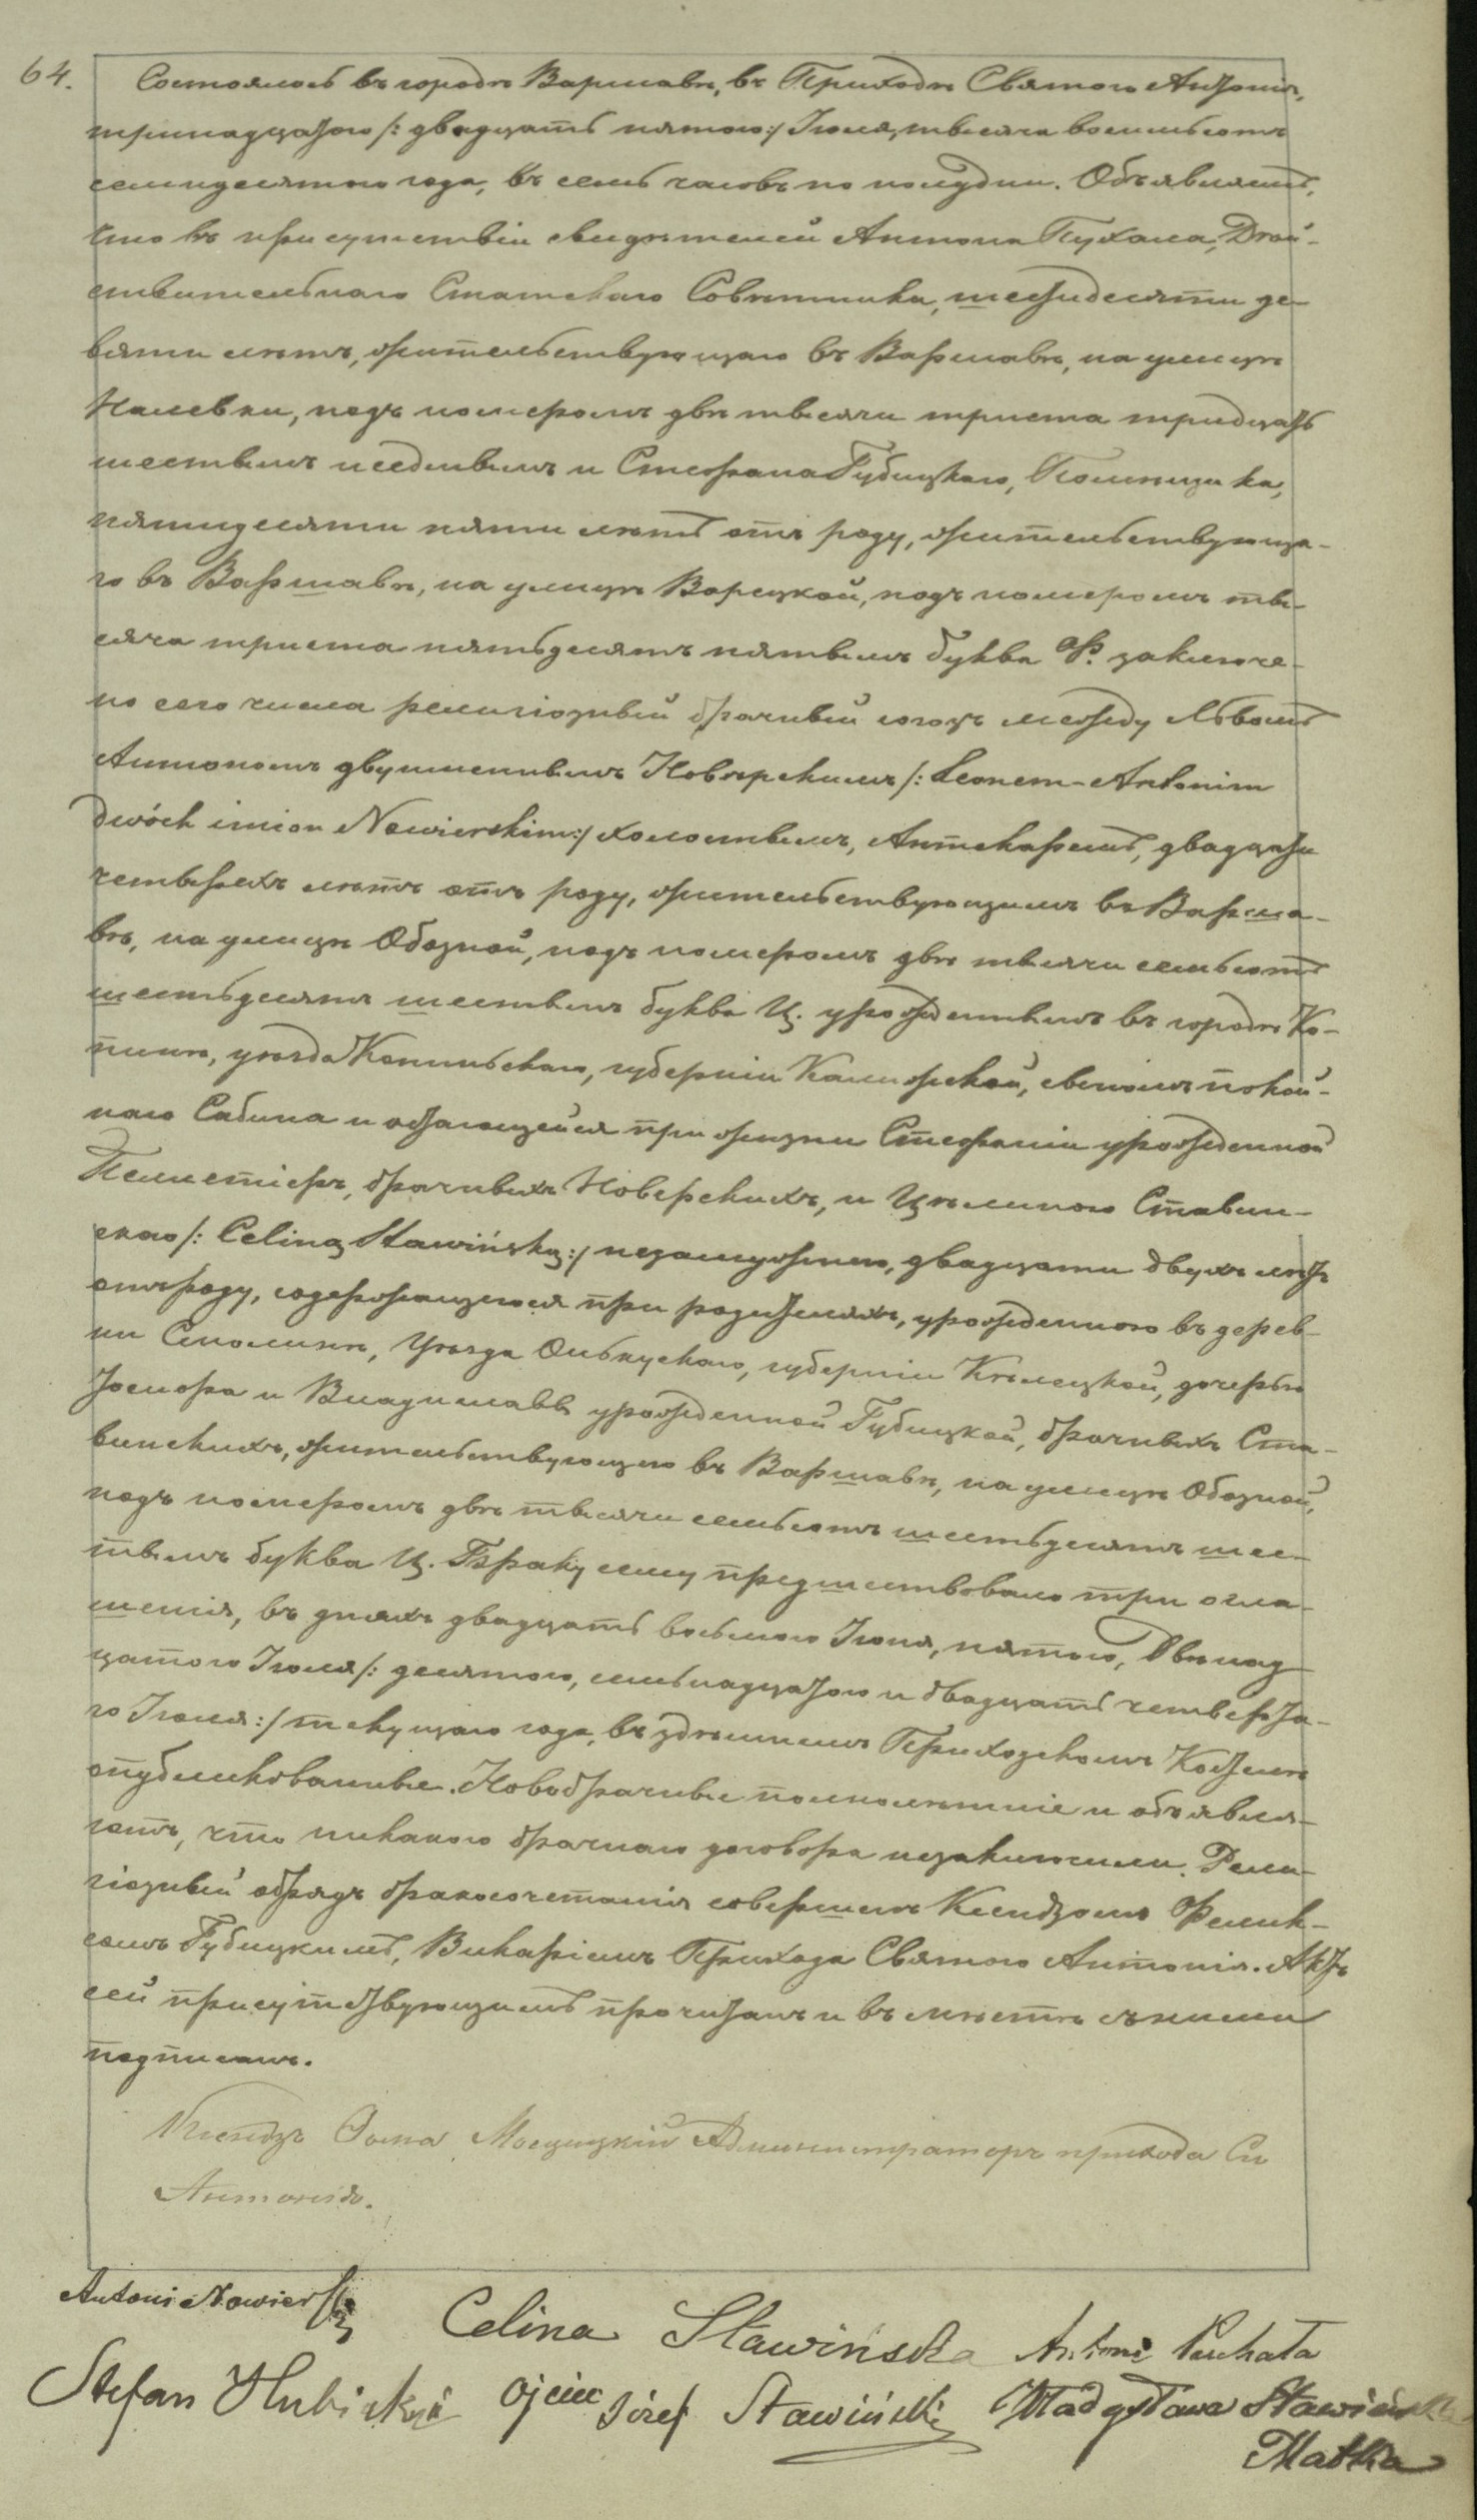 64.
Состоялось въ городѣ Варшавѣ, въ Приходѣ Святого Антонія,
тринадцатого /: двадцать пятого :/ Іюля, тысяча восемьсотъ
семидесятого года, въ семь часовъ по полудни. Объявляемъ,
что въ присутствіи свидѣтелей Антона Пухала, Дѣй-
ствительнаго Статскаго Совѣтника, шестидесяти де-
вяти лѣтъ, жительствующаго въ Варшавѣ, на улицѣ
Налевки, подъ номеромъ двѣ тысячи триста тридцать
шестымъ и седмымъ и Стефана Губицкаго, Помѣщика,
пятидесяти пяти лѣтъ отъ роду, жительствующа-
го въ Варшавѣ, на улицѣ Варецкой, подъ номеромъ ты-
сяча триста пятьдесятъ пятымъ буква Ф. заключе-
но сего числа религіозный брачный союзъ между Львомъ
Антономъ двуименнымъ Новѣрскимъ /: Leonem-Antonim
dwóch imion Nowierskim :/ холостымъ, Аптекаремъ, двадцати
четырехъ лѣтъ отъ роду, жительствующимъ въ Варша-
вѣ, на улицѣ Обозной, подъ номеромъ двѣ тысячи семьсотъ
шестьдесятъ шестымъ буква Ц. урожденнымъ въ городѣ Ко-
нинѣ, уѣзда Конинскаго, губерніи Калишской, сыномъ покой-
наго Сабина и остающейся при жизни Стефаніи урожденной
брачныхъ Новерскихъ, и Цѣлиною Ставин-
скою /: Celiną Stawińską :/ незамужнею, двадцати двухъ лѣтъ
отъ роду, содержащеюся при родителяхъ, урожденною въ дерев-
ни Смолинѣ, Уѣзда Олькускаго, губерніи Кѣлецкой, дочерью
Іосифа и Владиславы урожденной Губицкой, брачныхъ Ста-
винскихъ, жительствующею въ Варшавѣ, на улицѣ Обозной,
подъ номеромъ двѣ тысячи семьсотъ шестьдесятъ шес-
тымъ буква Ц. Браку сему предшествовало три огла-
шенія, въ дняхъ двадцать восьмого Іюня, пятого, двѣнад-
цатого Іюля /: десятого, семьнадцатого и двадцать четверта-
го Іюля :/ текущаго года, въ здѣшнемъ Приходскомъ Костелѣ
опубликованные. Новобрачные полнолѣтніе и объявля-
ютъ, что никакого брачнаго договора незаключили. Рели-
гіозный обрядъ бракосочетанія совершенъ Ксендзомъ Фелик-
сомъ Губицкимъ, Викаріемъ Прихода Святого Антонія. Актъ
сей присутствующимъ прочитанъ и въ мѣстѣ съ ними
подписанъ.
Ксендзъ Ѳома Мосцицкій Администраторъ прихода Св
Антонія.
Antoni Nowierski
Celina Stawińska Antoni Puchała
Stefan Hubicki Ojciec Józef Stawiński Władysława Stawińska
Matka